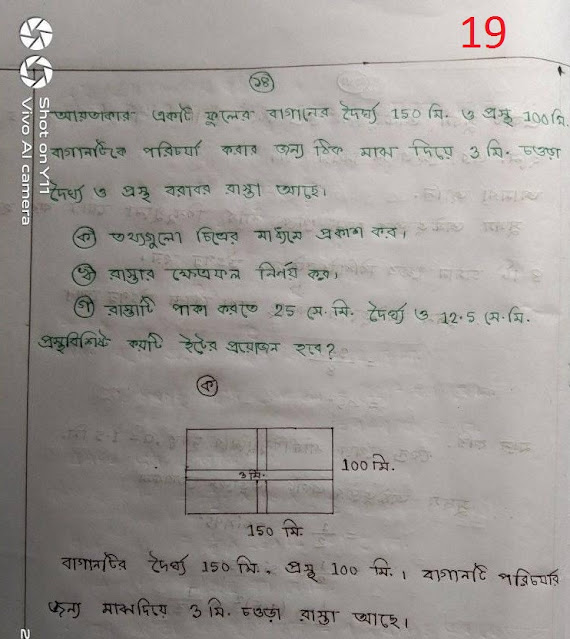 19
১৪
আয়তাকার একটি ফুলের বাগানের দৈর্ঘ্য 150 মি. ও প্রস্থ 100 মি.
বাগানটিকে পরিচর্যা করার জন্য ঠিক মাঝ দিয়ে 3 মি. চওড়া
দৈর্ঘ্য ও প্রস্থ বরাবর রাস্তা আছে।
ক তথ্যগুলো চিত্রের মাধ্যমে প্রকাশ কর।
খ রাস্তার ক্ষেত্রফল নির্ণয় কর।
গ রাস্তাটি পাকা করতে 25 সে.মি. দৈর্ঘ্য ও 12.5 সে.মি.
প্রস্থবিশিষ্ট কয়টি ইটের প্রয়োজন হবে?
ক
3 মি.
100 মি.
150 মি.
বাগানটির দৈর্ঘ্য 150 মি., প্রস্থ 100 মি.। বাগানটি পরিচর্যার
জন্য মাঝদিয়ে 3 মি. চওড়া রাস্তা আছে।
Shot on Y11
Vivo AI camera